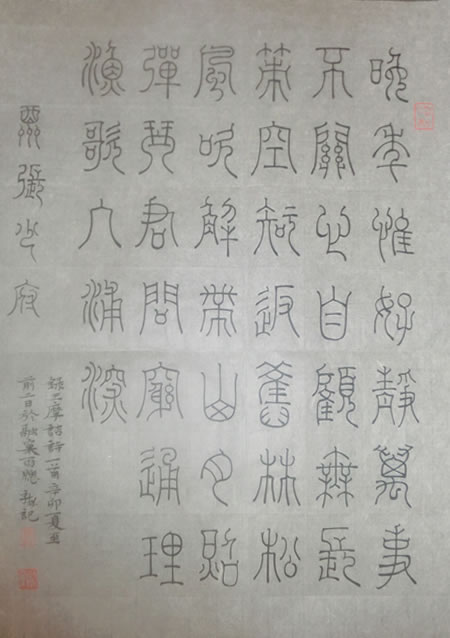 晚年惟好靜萬事
不關心自顧無長
策空知返舊林松
風吹解帶山月照
彈琴君問窮通理
漁歌入浦深
酬張少府
錄王摩詰詩一首辛卯夏至
前一日於融西記